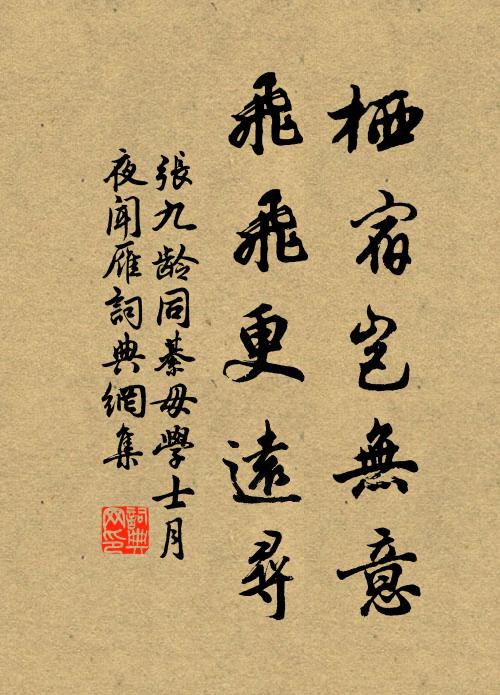 栖宿豈無意
飛飛更遠尋
張九齡同綦毋學士月
夜闻雁詞典網集
詞典网印